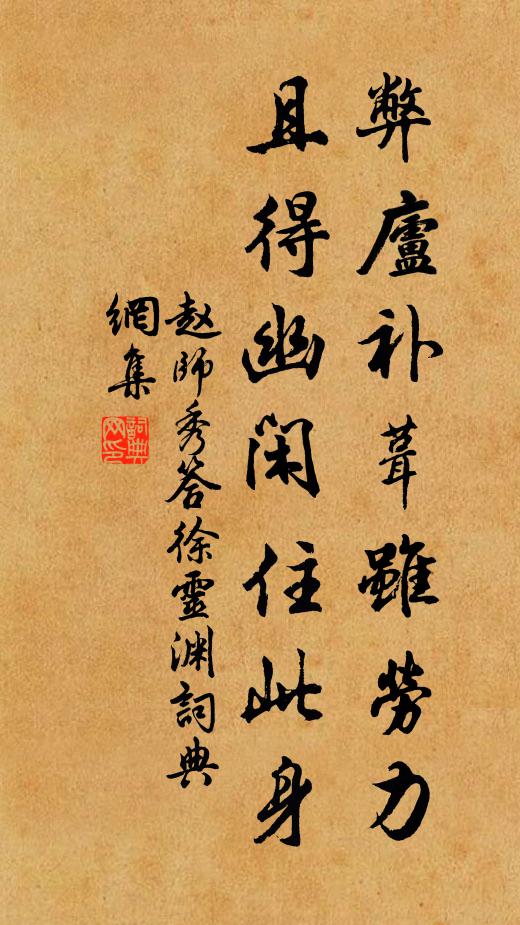 弊廬补葺雖勞力
且得幽閑住此身
赵師秀答徐靈渊詞典
網集
詞典
网印